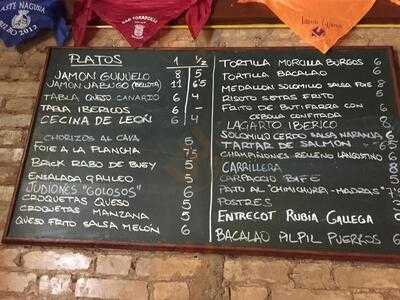 ASTE NAGUSIA
BILBO 2012
PLATOS 1 1/2
JAMON GUIJUELO 8 5
JAMON JABUGO (BELLOTA) 11 6'5
TABLA QUESO CANARIO 6 -
TABLA IBERICOS 6 -
CECINA DE LEÓN 6 4
CHORIZOS AL CAVA 5
FOIE A LA PLANCHA
RABO DE BUEY 5
ENSALADA GALILEO 5
JUDIONES "GOLOSOS" 6
CROQUETAS QUESO 5
CROQUETAS MANZANA 5
QUESO FRITO SALSA MELÓN 6
TORTILLA MORCILLA BURGOS 6
TORTILLA BACALAO 6
MEDALLON SOLOMILLO SALSA FOIE 8
RISOTO SETAS FRITO
FRITO DE BUTIFARRA CON 6
CEBOLLA CONFITADA
LAGARTO IBERICO 8
SOLOMILLO CERDO SALSA NARANJA 6
TARTAR DE SALMÓN
CHAMPIÑONES RELLENO LANGOSTINO 6
CARRILLERA 8
CARPACCIO
PATO AL "CHIMICHURRI-MADRAS"
POSTRES
ENTRECOT RUBIA GALLEGA
BACALAO PILPIL PUERROS 6